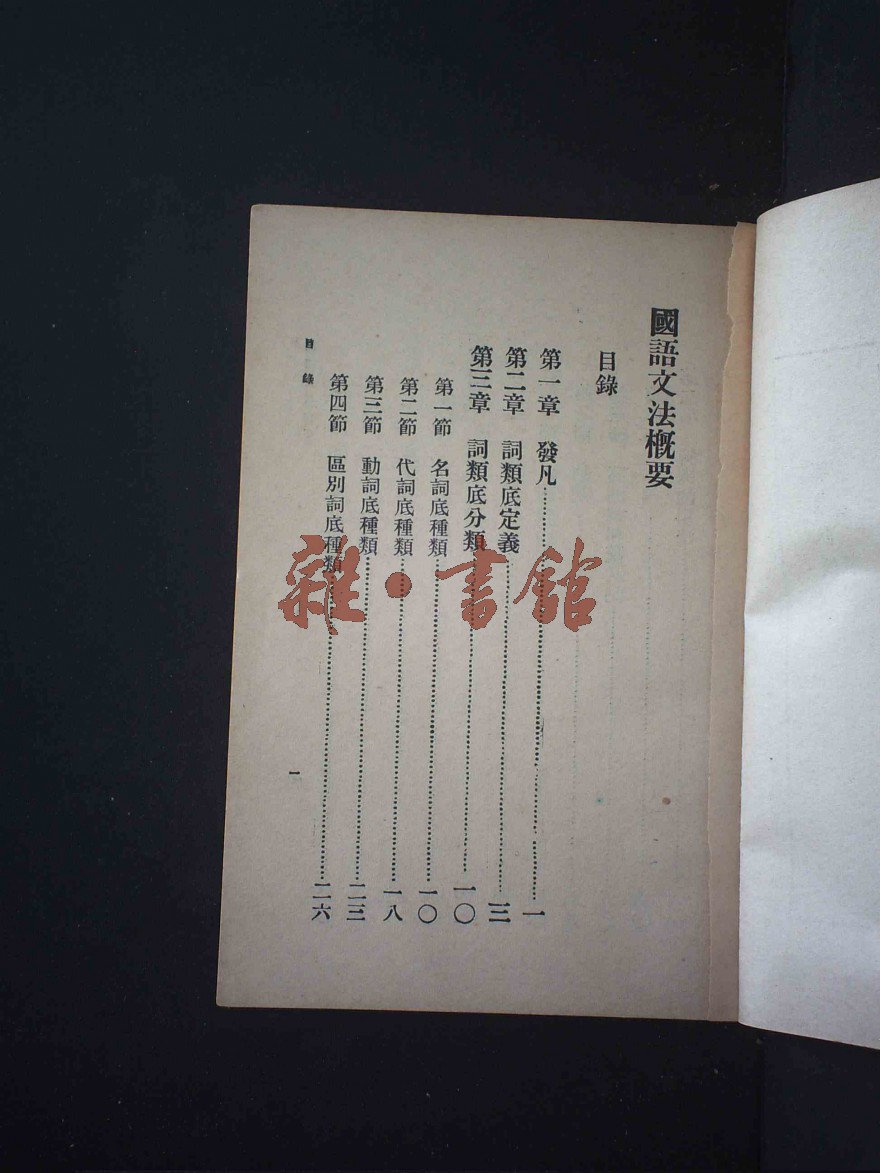 國語文法概要
目錄
第一章 發凡……一
第二章 詞類底定義……三
第三章 詞類底分類……一〇
第一節 名詞底種類……一〇
第二節 代詞底種類……一八
第三節 動詞底種類……二三
第四節 區別詞底種類……二六
目錄 一
雜·書館